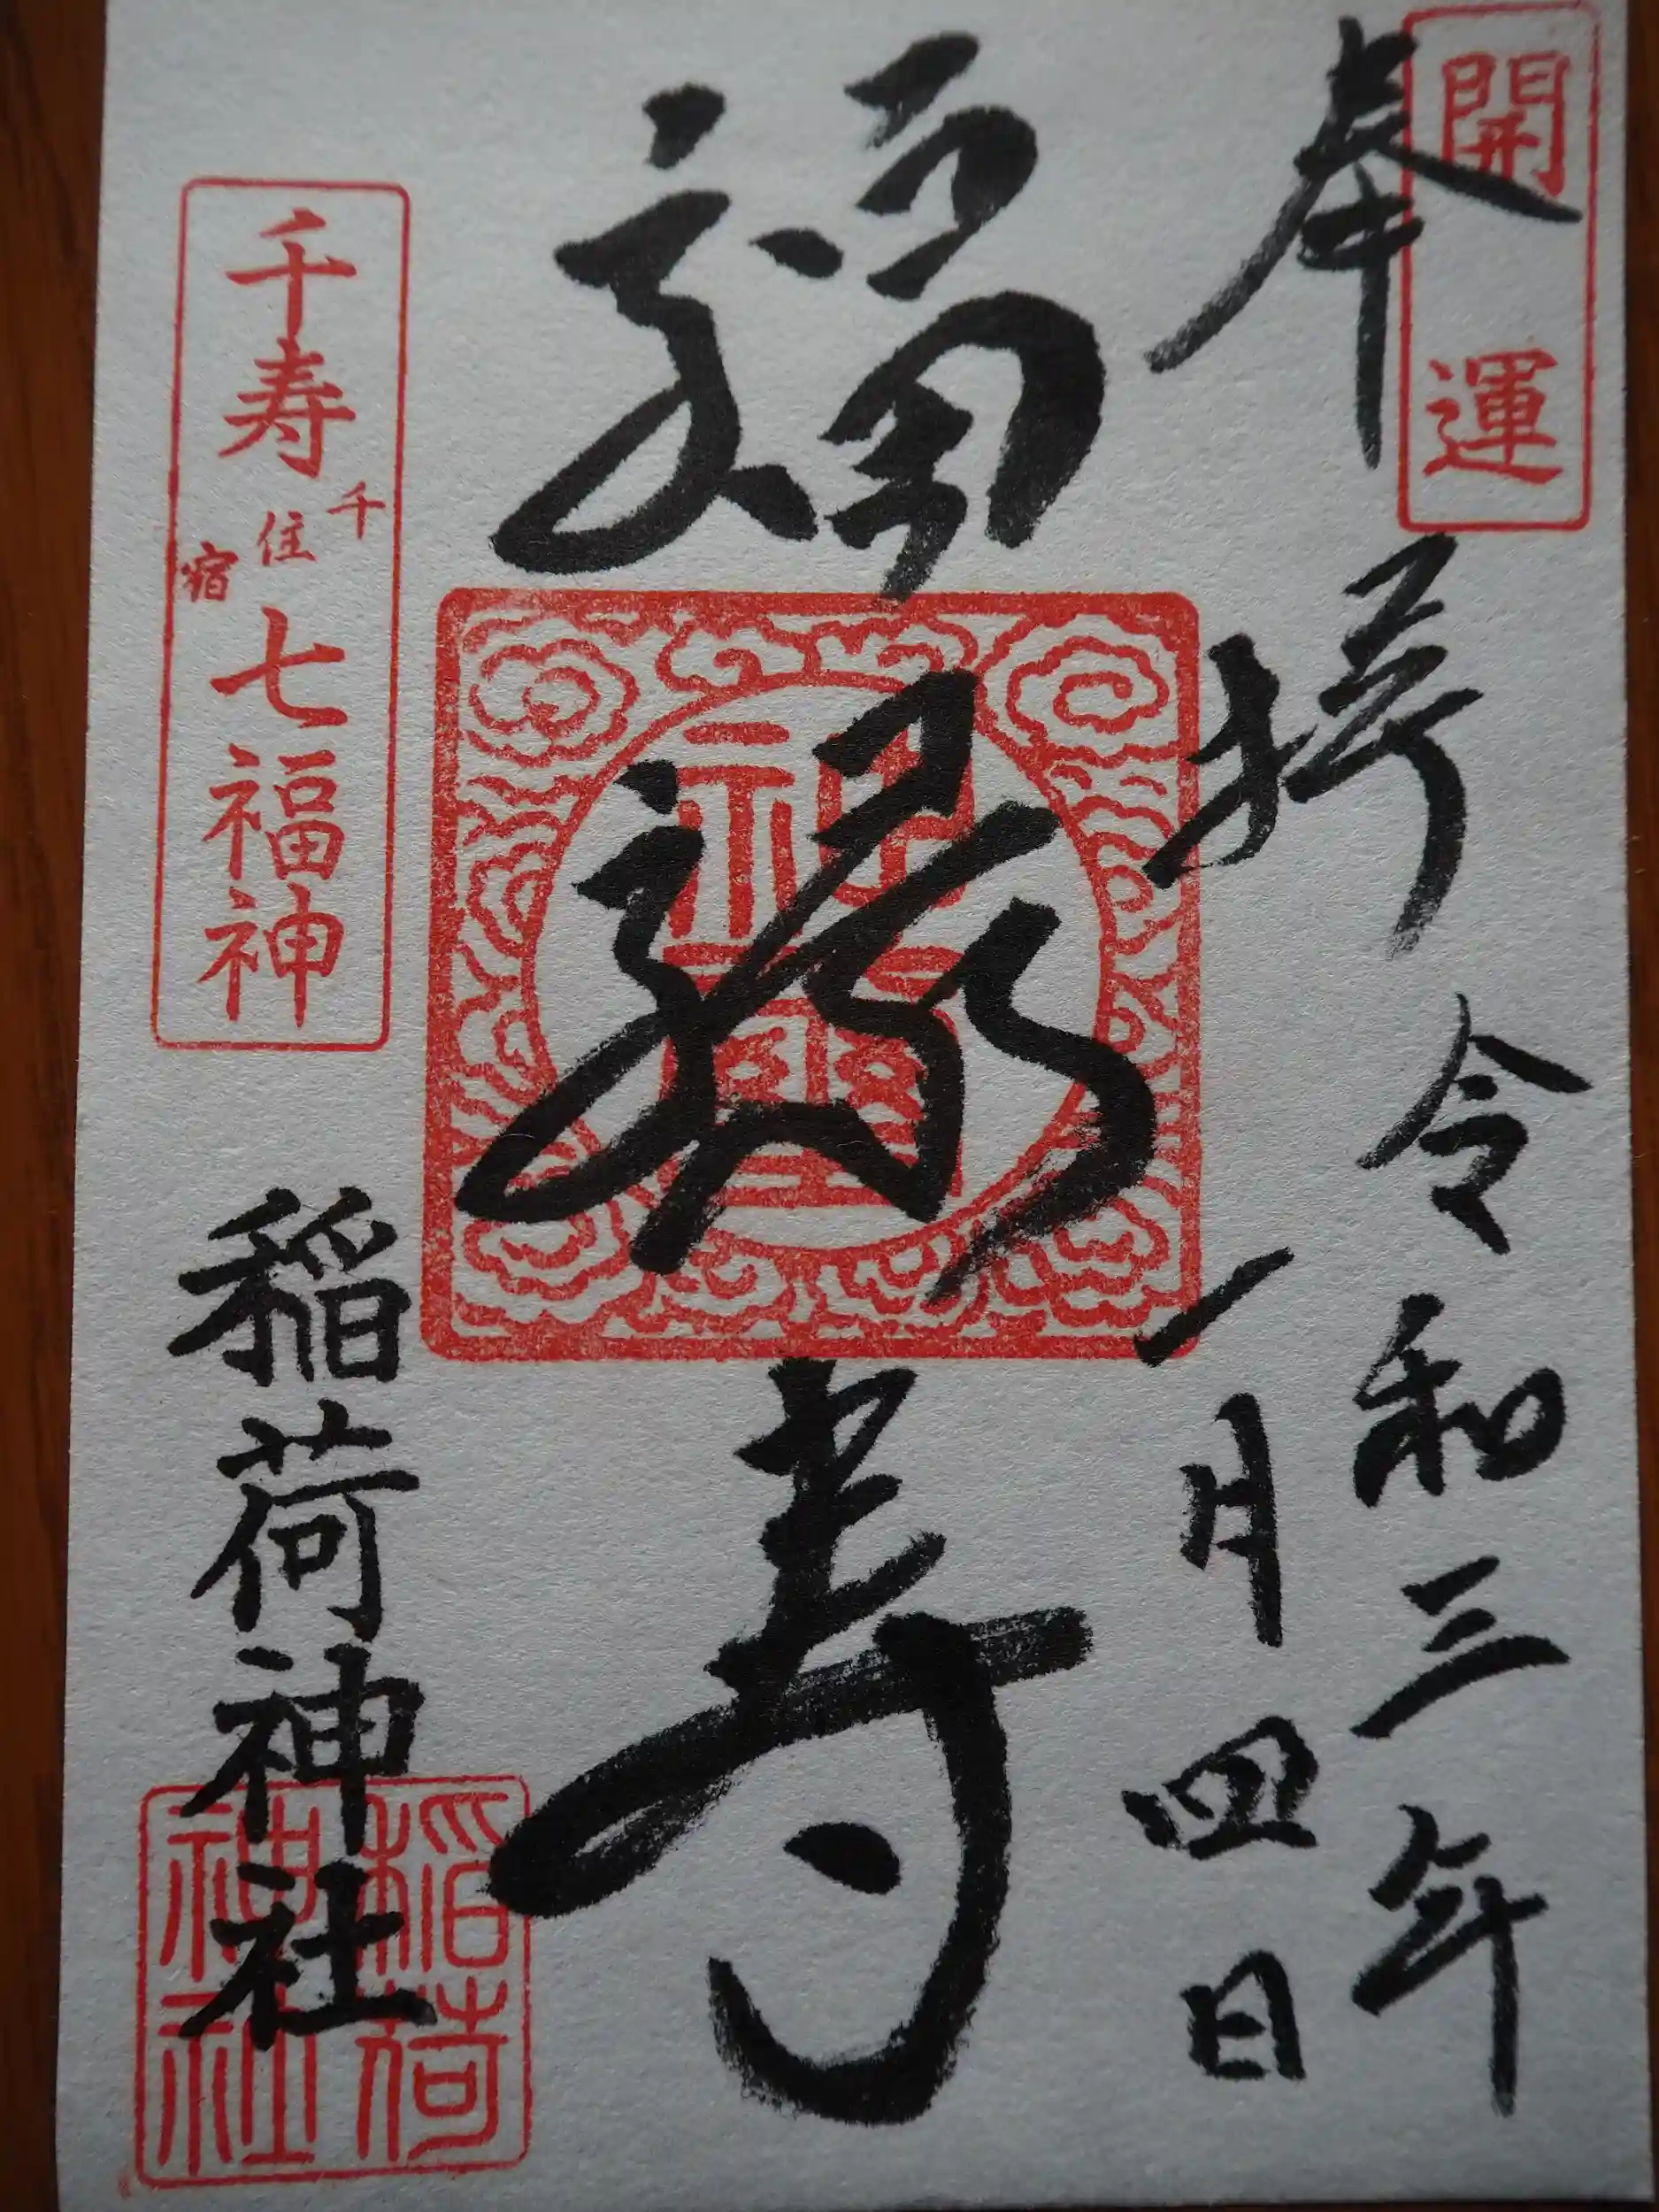 開運
奉拝
令和三年
一月四日
福禄寿
千寿
千住宿
七福神
稲荷神社
稲荷
神社